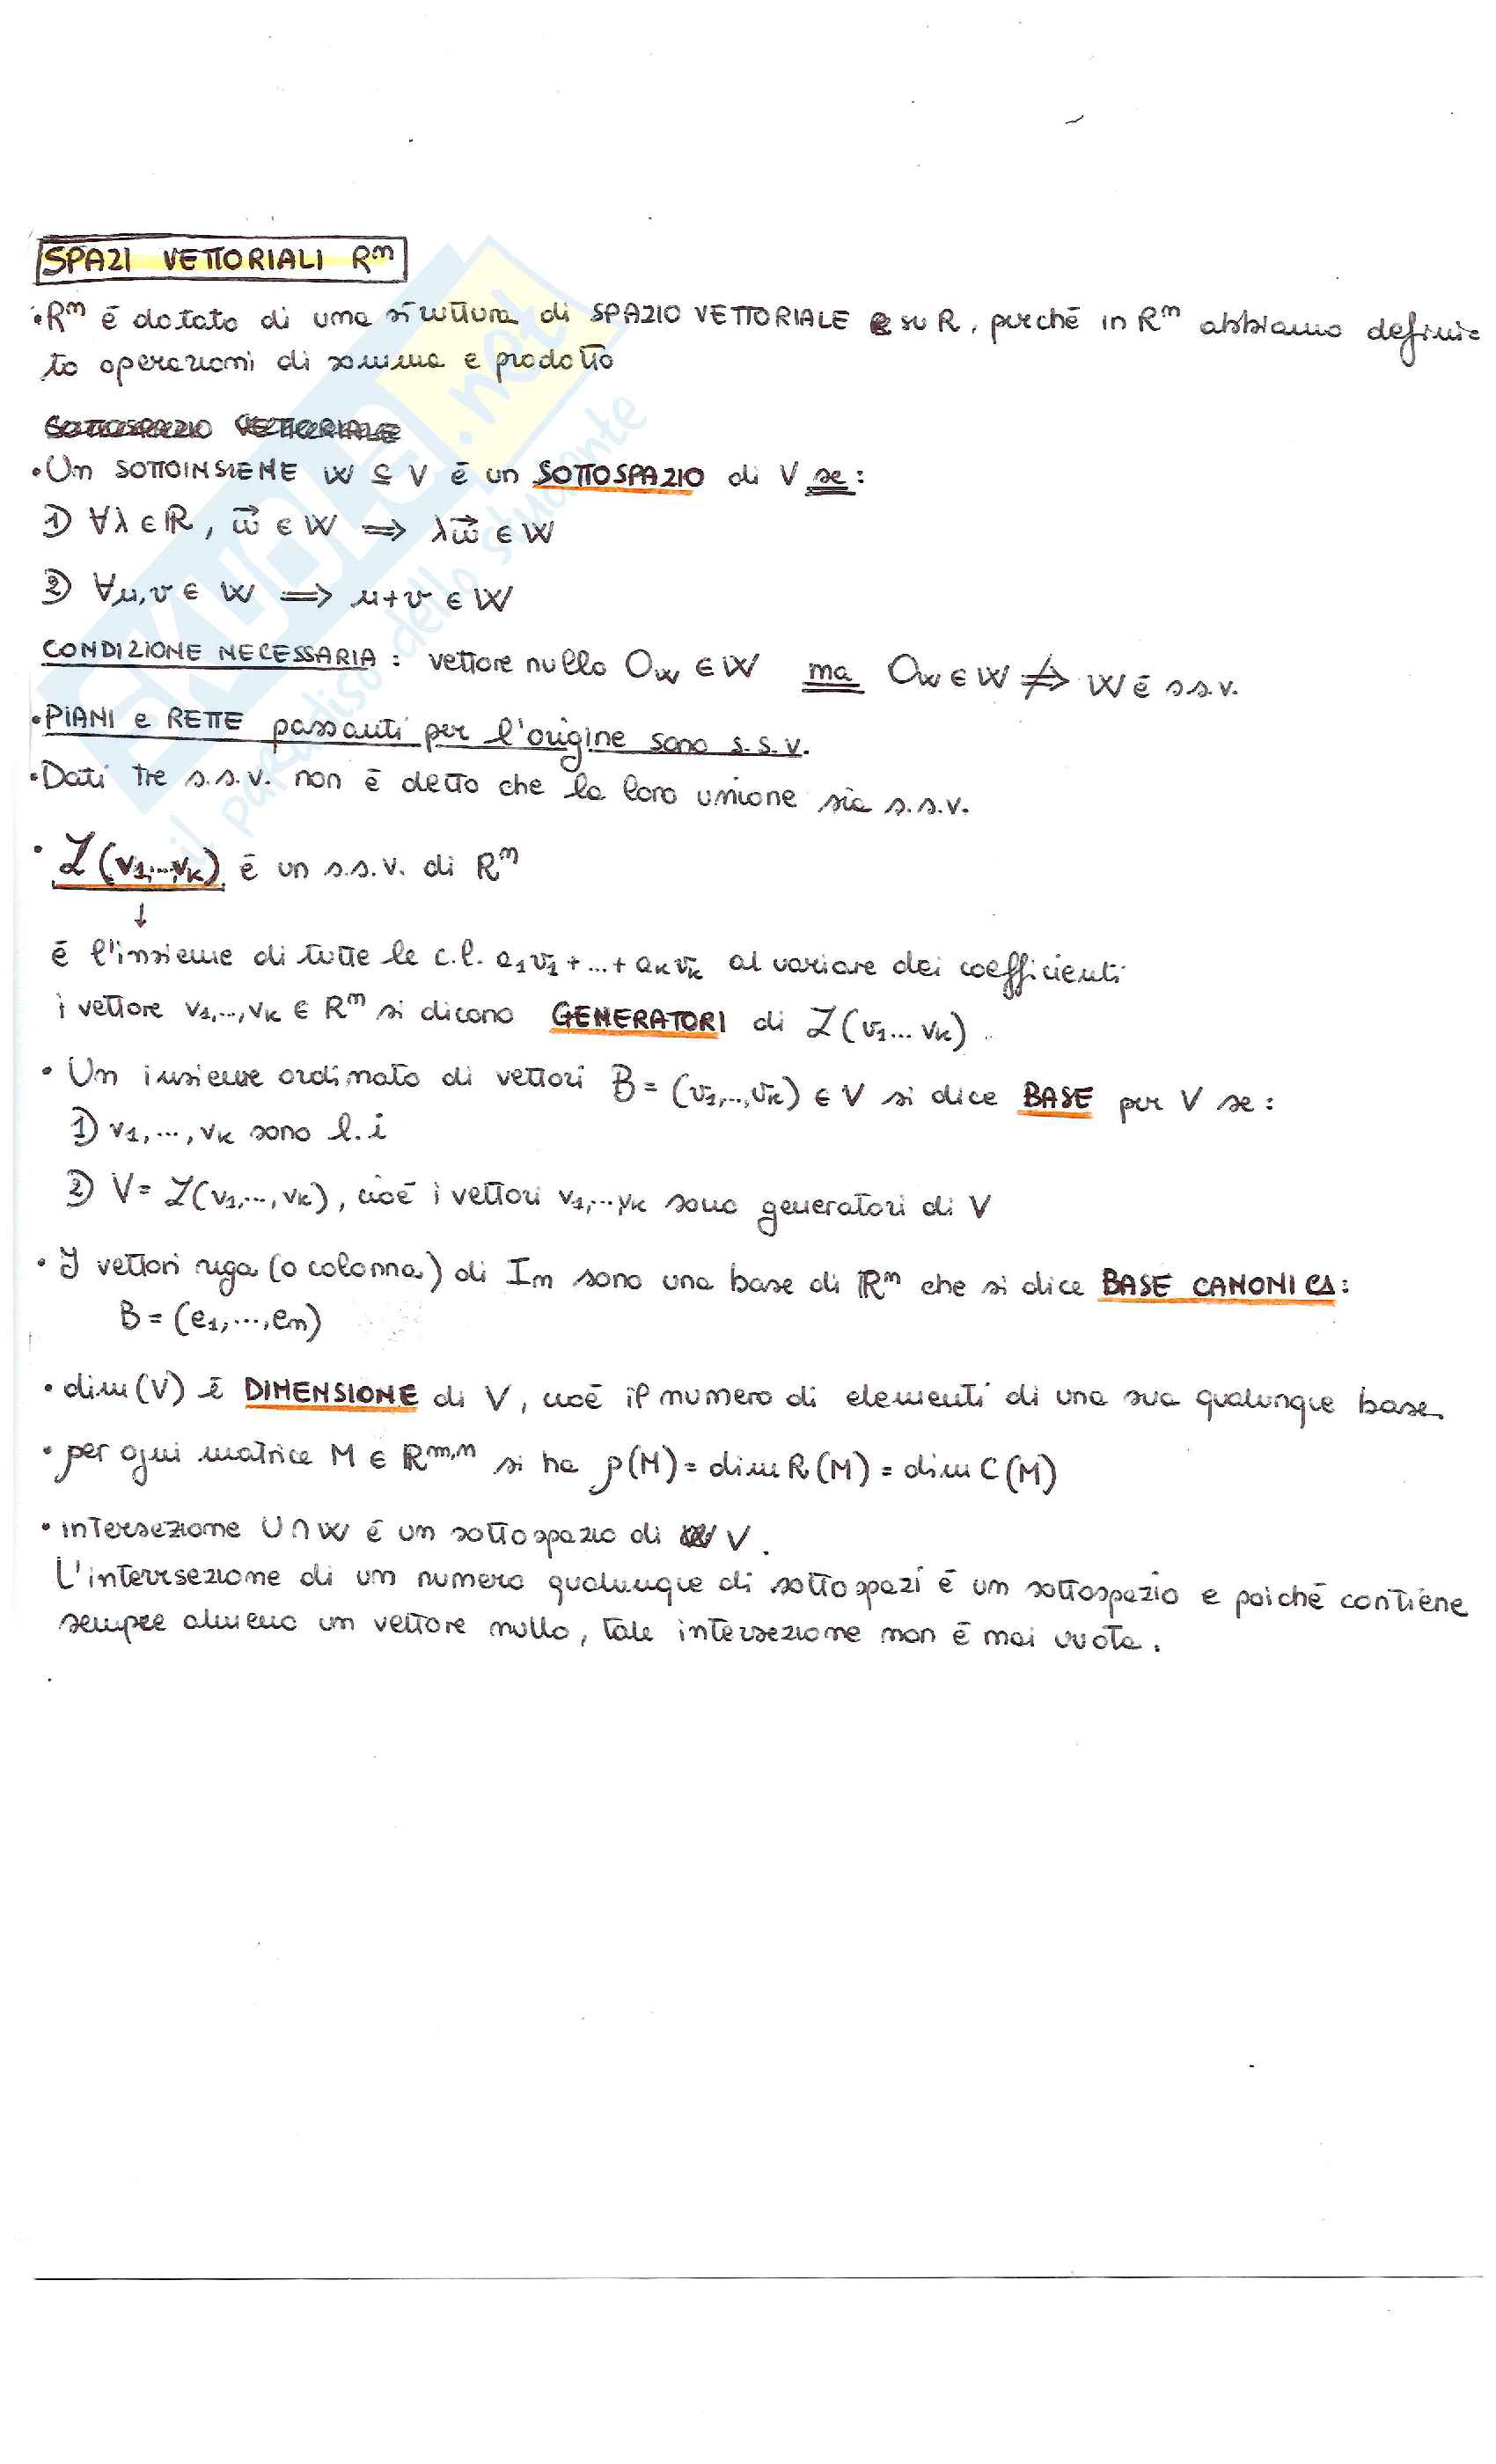 SPAZI VETTORIALI Rⁿ
•Rⁿ è dotato di una struttura di SPAZIO VETTORIALE su R, perché in Rⁿ abbiamo defini-
to operazioni di somma e prodotto
SOTTOSPAZIO VETTORIALE
•Un SOTTOINSIEME W ⊆ V è un SOTTOSPAZIO di V se:
1) ∀λ ∈ ℝ, w⃗ ∈ W ⟹ λw⃗ ∈ W
2) ∀u,v ∈ W ⟹ u+v ∈ W
CONDIZIONE NECESSARIA: vettore nullo O_W ∈ W ma O_W ∈ W ⇏ W è s.s.v.
•PIANI e RETTE passanti per l'origine sono s.s.v.
•Dati tre s.s.v. non è detto che la loro unione sia s.s.v.
• ℒ(v₁,...,vₖ) è un s.s.v. di Rⁿ
↓
è l'insieme di tutte le c.l. a₁v₁+...+aₖvₖ al variare dei coefficienti
i vettore v₁,...,vₖ ∈ Rⁿ si dicono GENERATORI di ℒ(v₁...vₖ)
• Un insieme ordinato di vettori B=(v₁,...,vₖ) ∈ V si dice BASE per V se:
1) v₁,...,vₖ sono l.i
2) V=ℒ(v₁,...,vₖ), cioè i vettori v₁,...,vₖ sono generatori di V
• I vettori riga (o colonna) di Iₙ sono una base di ℝⁿ che si dice BASE CANONICA:
B=(e₁,...,eₙ)
• dim(V) è DIMENSIONE di V, cioè il numero di elementi di una sua qualunque base.
• per ogni matrice M ∈ ℝᵐ,ⁿ si ha ρ(M)=dim R(M)=dim C(M)
• intersezione U∩W è un sottospazio di V.
L'intersezione di un numero qualunque di sottospazi è un sottospazio e poiché contiene
sempre almeno un vettore nullo, tale intersezione non è mai vuota.
SKUOLA.net
il paradiso dello studente